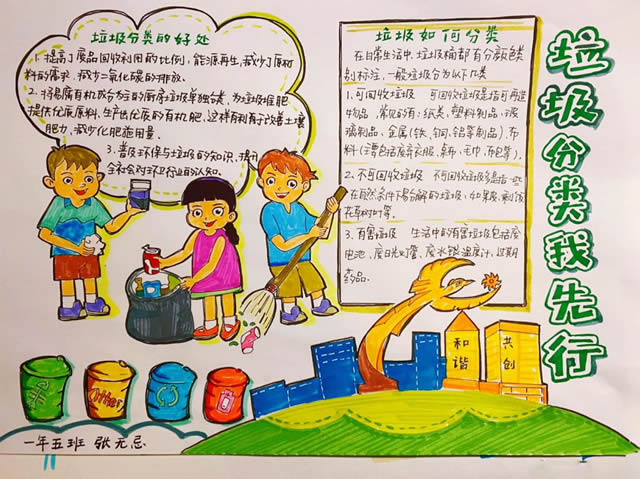 垃圾分类的好处
1.提高了废品回收利用的比例,能源再生,减少了原材
料的需求,减少二氧化碳的排放。
2.将易腐有机成分为主的厨房垃圾单独分类,为垃圾堆肥
提供优质原料,生产出优质的有机肥,这样有利于改善土壤
肥力,减少化肥施用量。
3.普及环保与垃圾的知识,提升
全社会对环卫行业的认知。
垃圾如何分类
在日常生活中,垃圾桶都有分颜色类
别标注,一般垃圾分为以下几类
1.可回收垃圾 可回收垃圾是指可再造
物品,常见的有:纸类,塑料制品,玻
璃制品,金属(铁、铜、铝等制品),布
料(主要包括废弃衣服、桌布、毛巾、布包等)。
2.不可回收垃圾 不可回收垃圾多是指一些
在自然条件下易分解的垃圾,如果皮、剩饭
花草树叶等。
3.有害垃圾 生活中的有害垃圾包括废
电池、废日光灯管、废水银温度计、过期
药品。
垃圾分类我先行
和谐
共创
Other
一年五班 张无忌